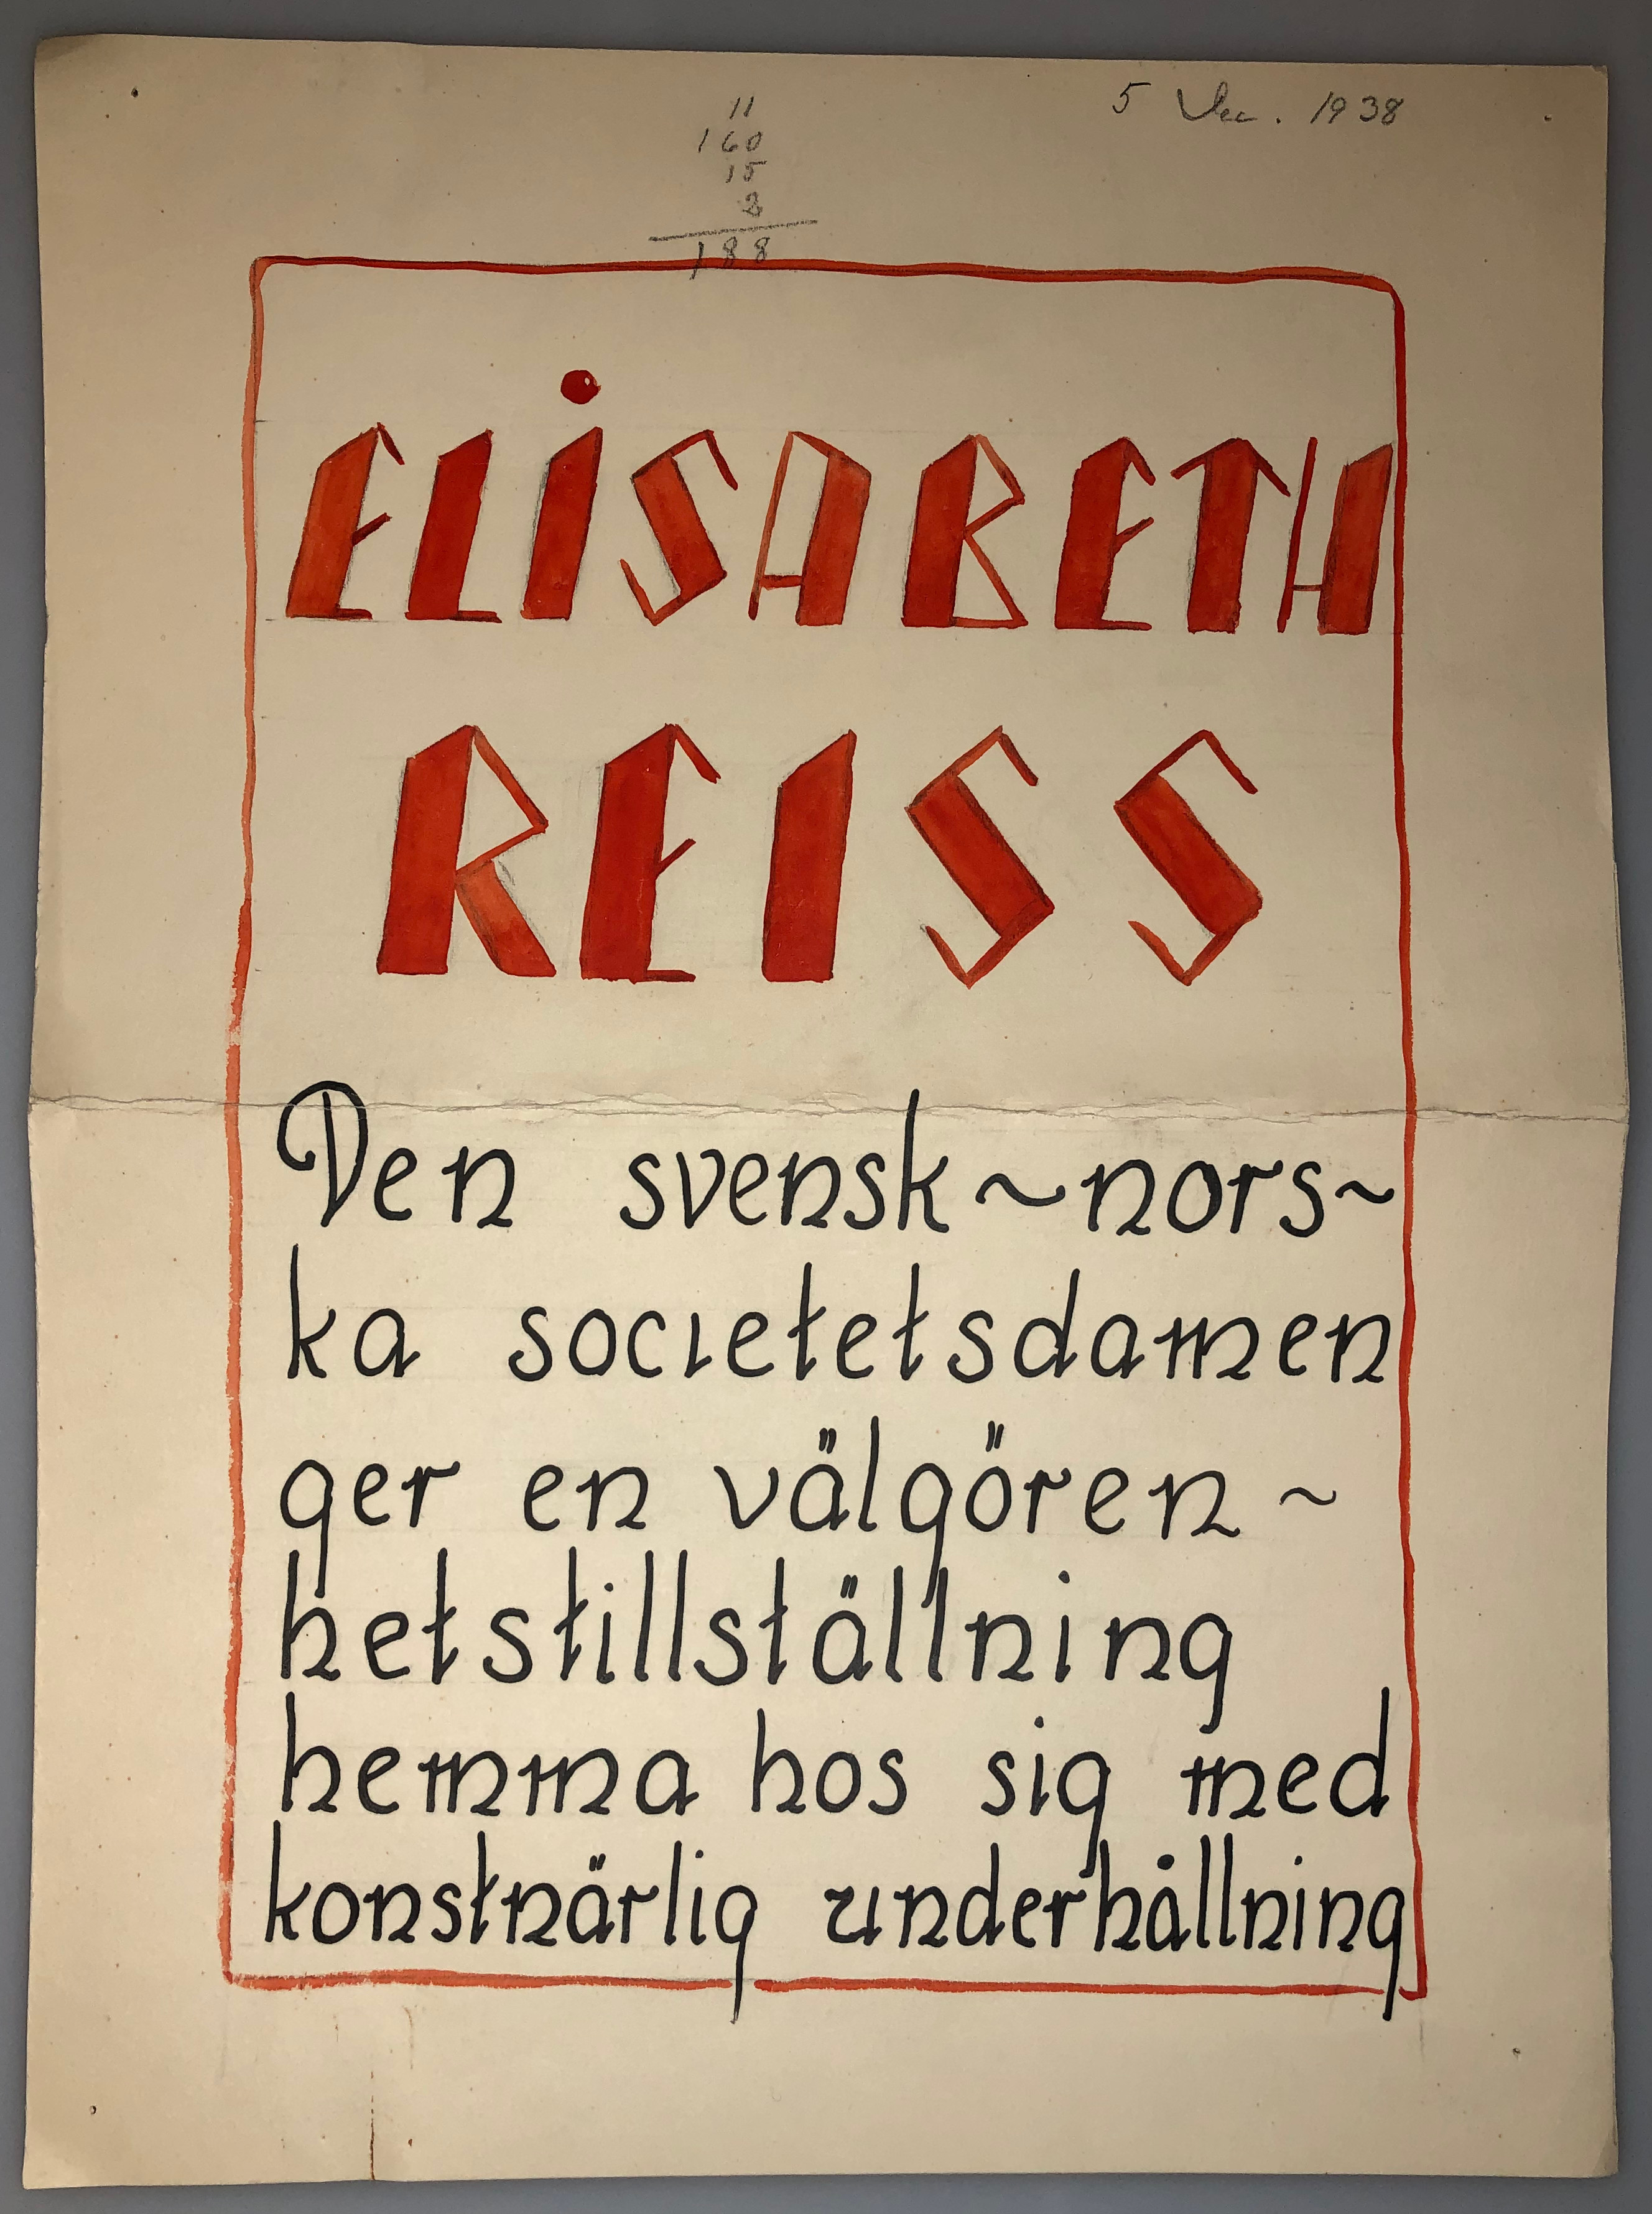 5 Dec. 1938
11
160
15
2
188
ELiSABETH
REISS
Den svensk~nors~
ka societetsdamen
ger en välgören~
hetstillställning
hemma hos sig med
konstnärlig underhållning